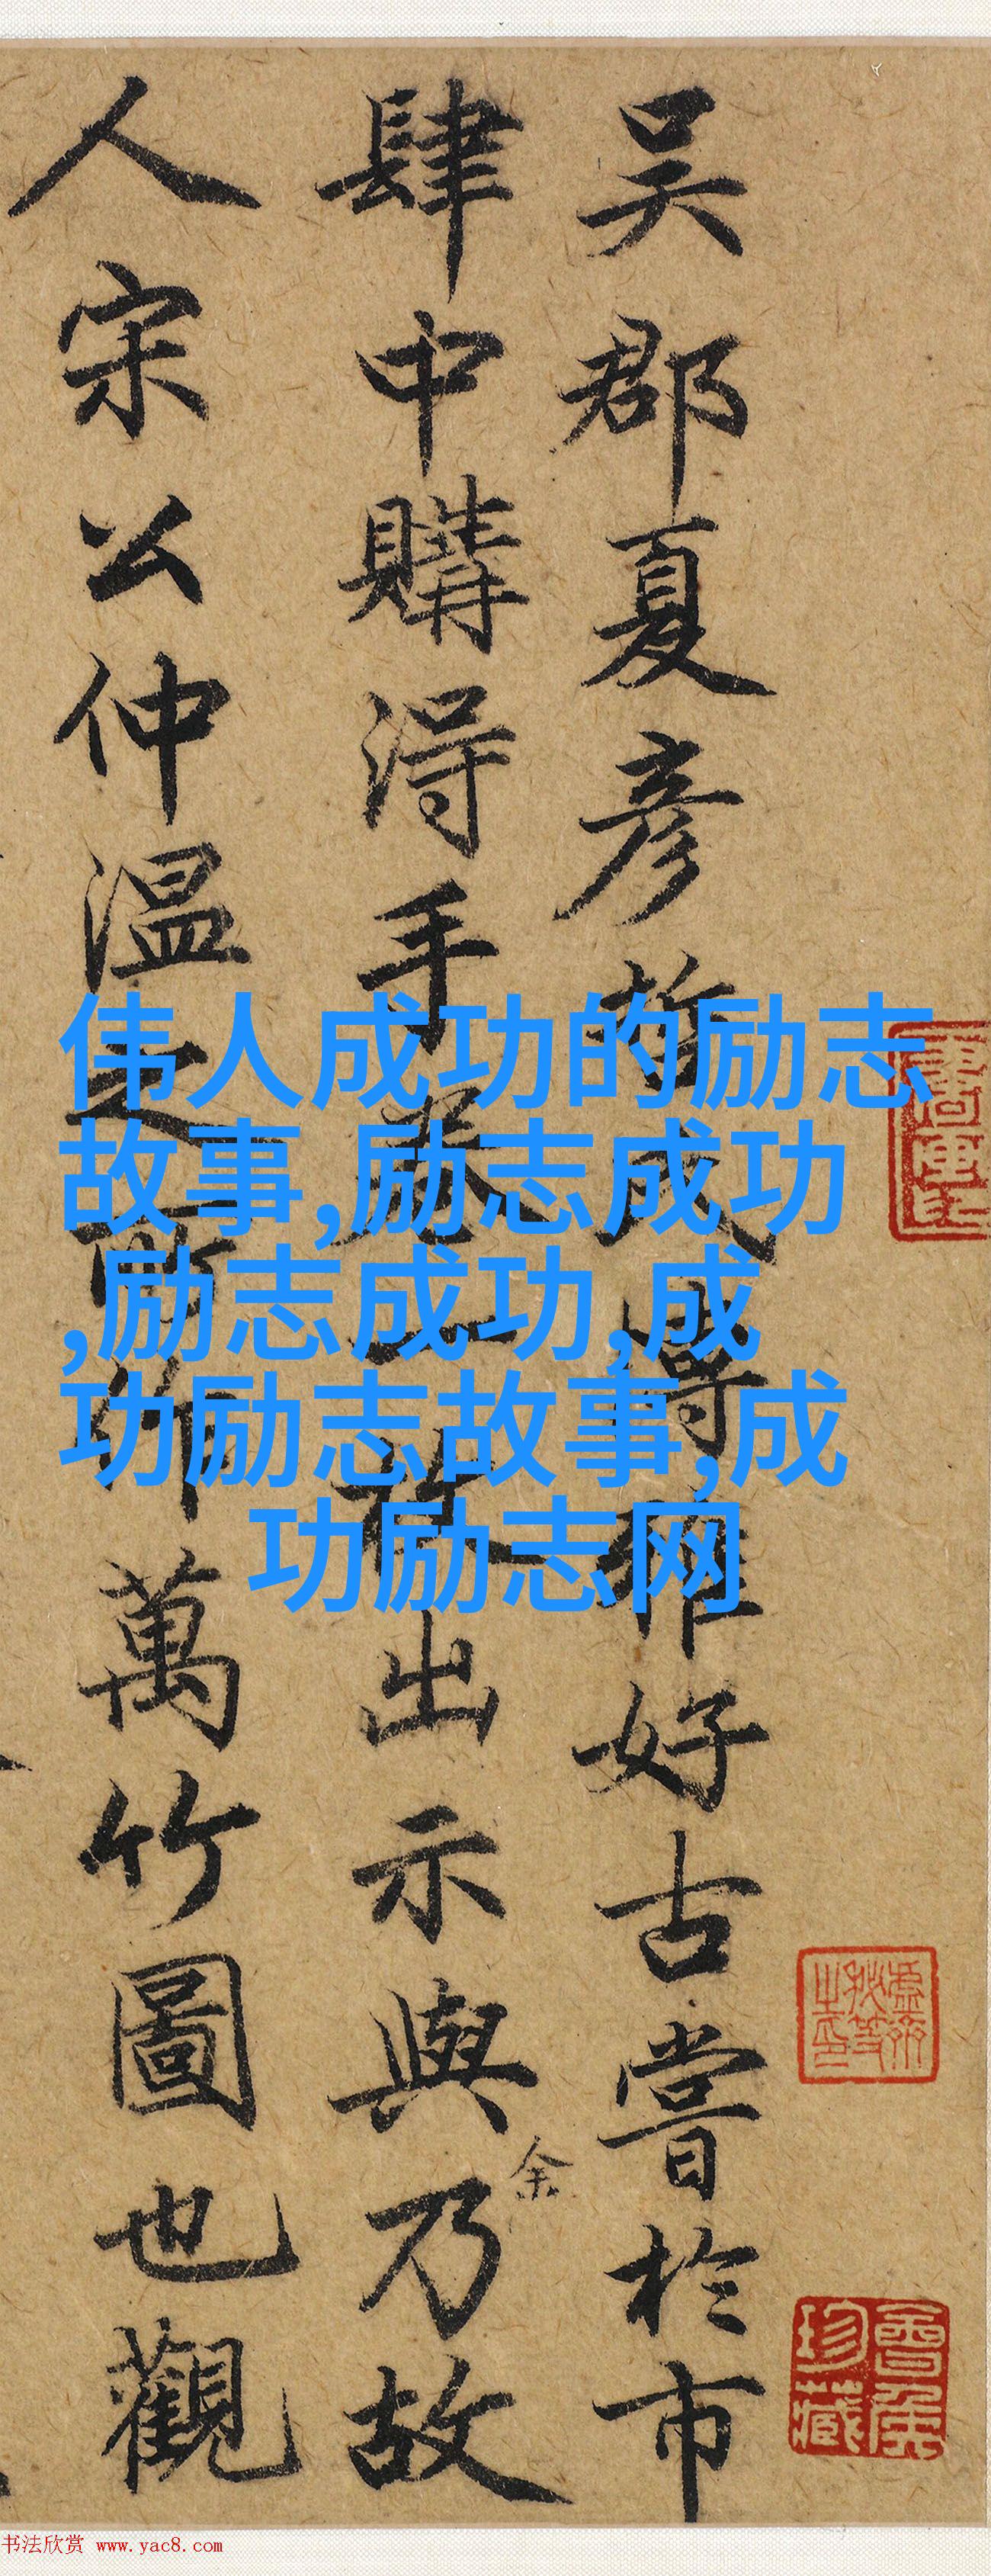 吴郡夏彦哲成得雅好古嘗於市
肆中購得手卷
出示與余乃故
人宋公仲温之所作萬竹圖也觀
伟人成功的励志
故事,励志成功
,励志成功,成
功励志故事,成
功励志网
珍藏
书法欣赏 www.yac8.com